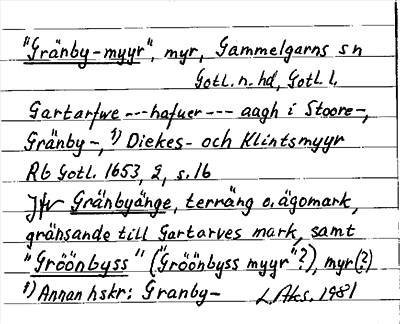 "Gränby-myyr", myr, Gammelgarns sn
Gotl. n. hd, Gotl. l.
Gartarfwe --- hafuer --- aagh i Stoore-,
Gränby-, 1) Diekes- och Klintsmyyr
Rb Gotl. 1653, 2, s. 16
Jfr Gränbyänge, terräng o. ägomark,
gränsande till Gartarves mark, samt
"Gröönbyss" ("Gröönbyss myyr"?), myr(?)
1) Annan hskr: Granby-
L. Aks. 1981